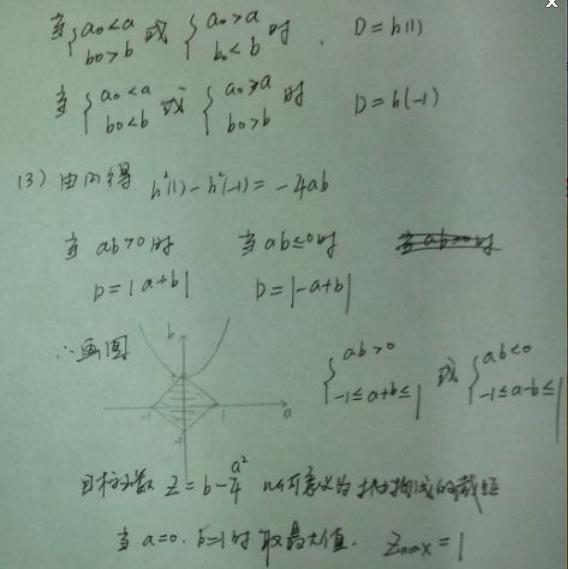 当{a₀<a b₀>b 或 {a₀>a b₀<b 时, D=h(1)
当{a₀<a b₀<b 或 {a₀>a b₀>b 时 D=h(-1)
(3) 由(2)得 h²(1)-h²(-1)=-4ab
当 ab>0时 当 ab≤0时
D=|a+b| D=|-a+b|
∴画图
b
a
-1
1
{ab>0 -1≤a+b≤1 或 {ab<0 -1≤a-b≤1
目标函数 Z=b-a²/4 几何意义为抛物线的截距
当 a=0. b=1时 取最大值. Zmax=1